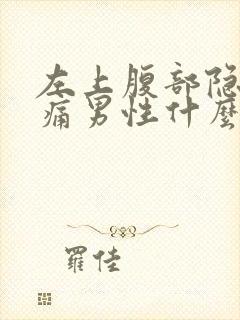 左上腹部隐
痛男性什麽
羅佳